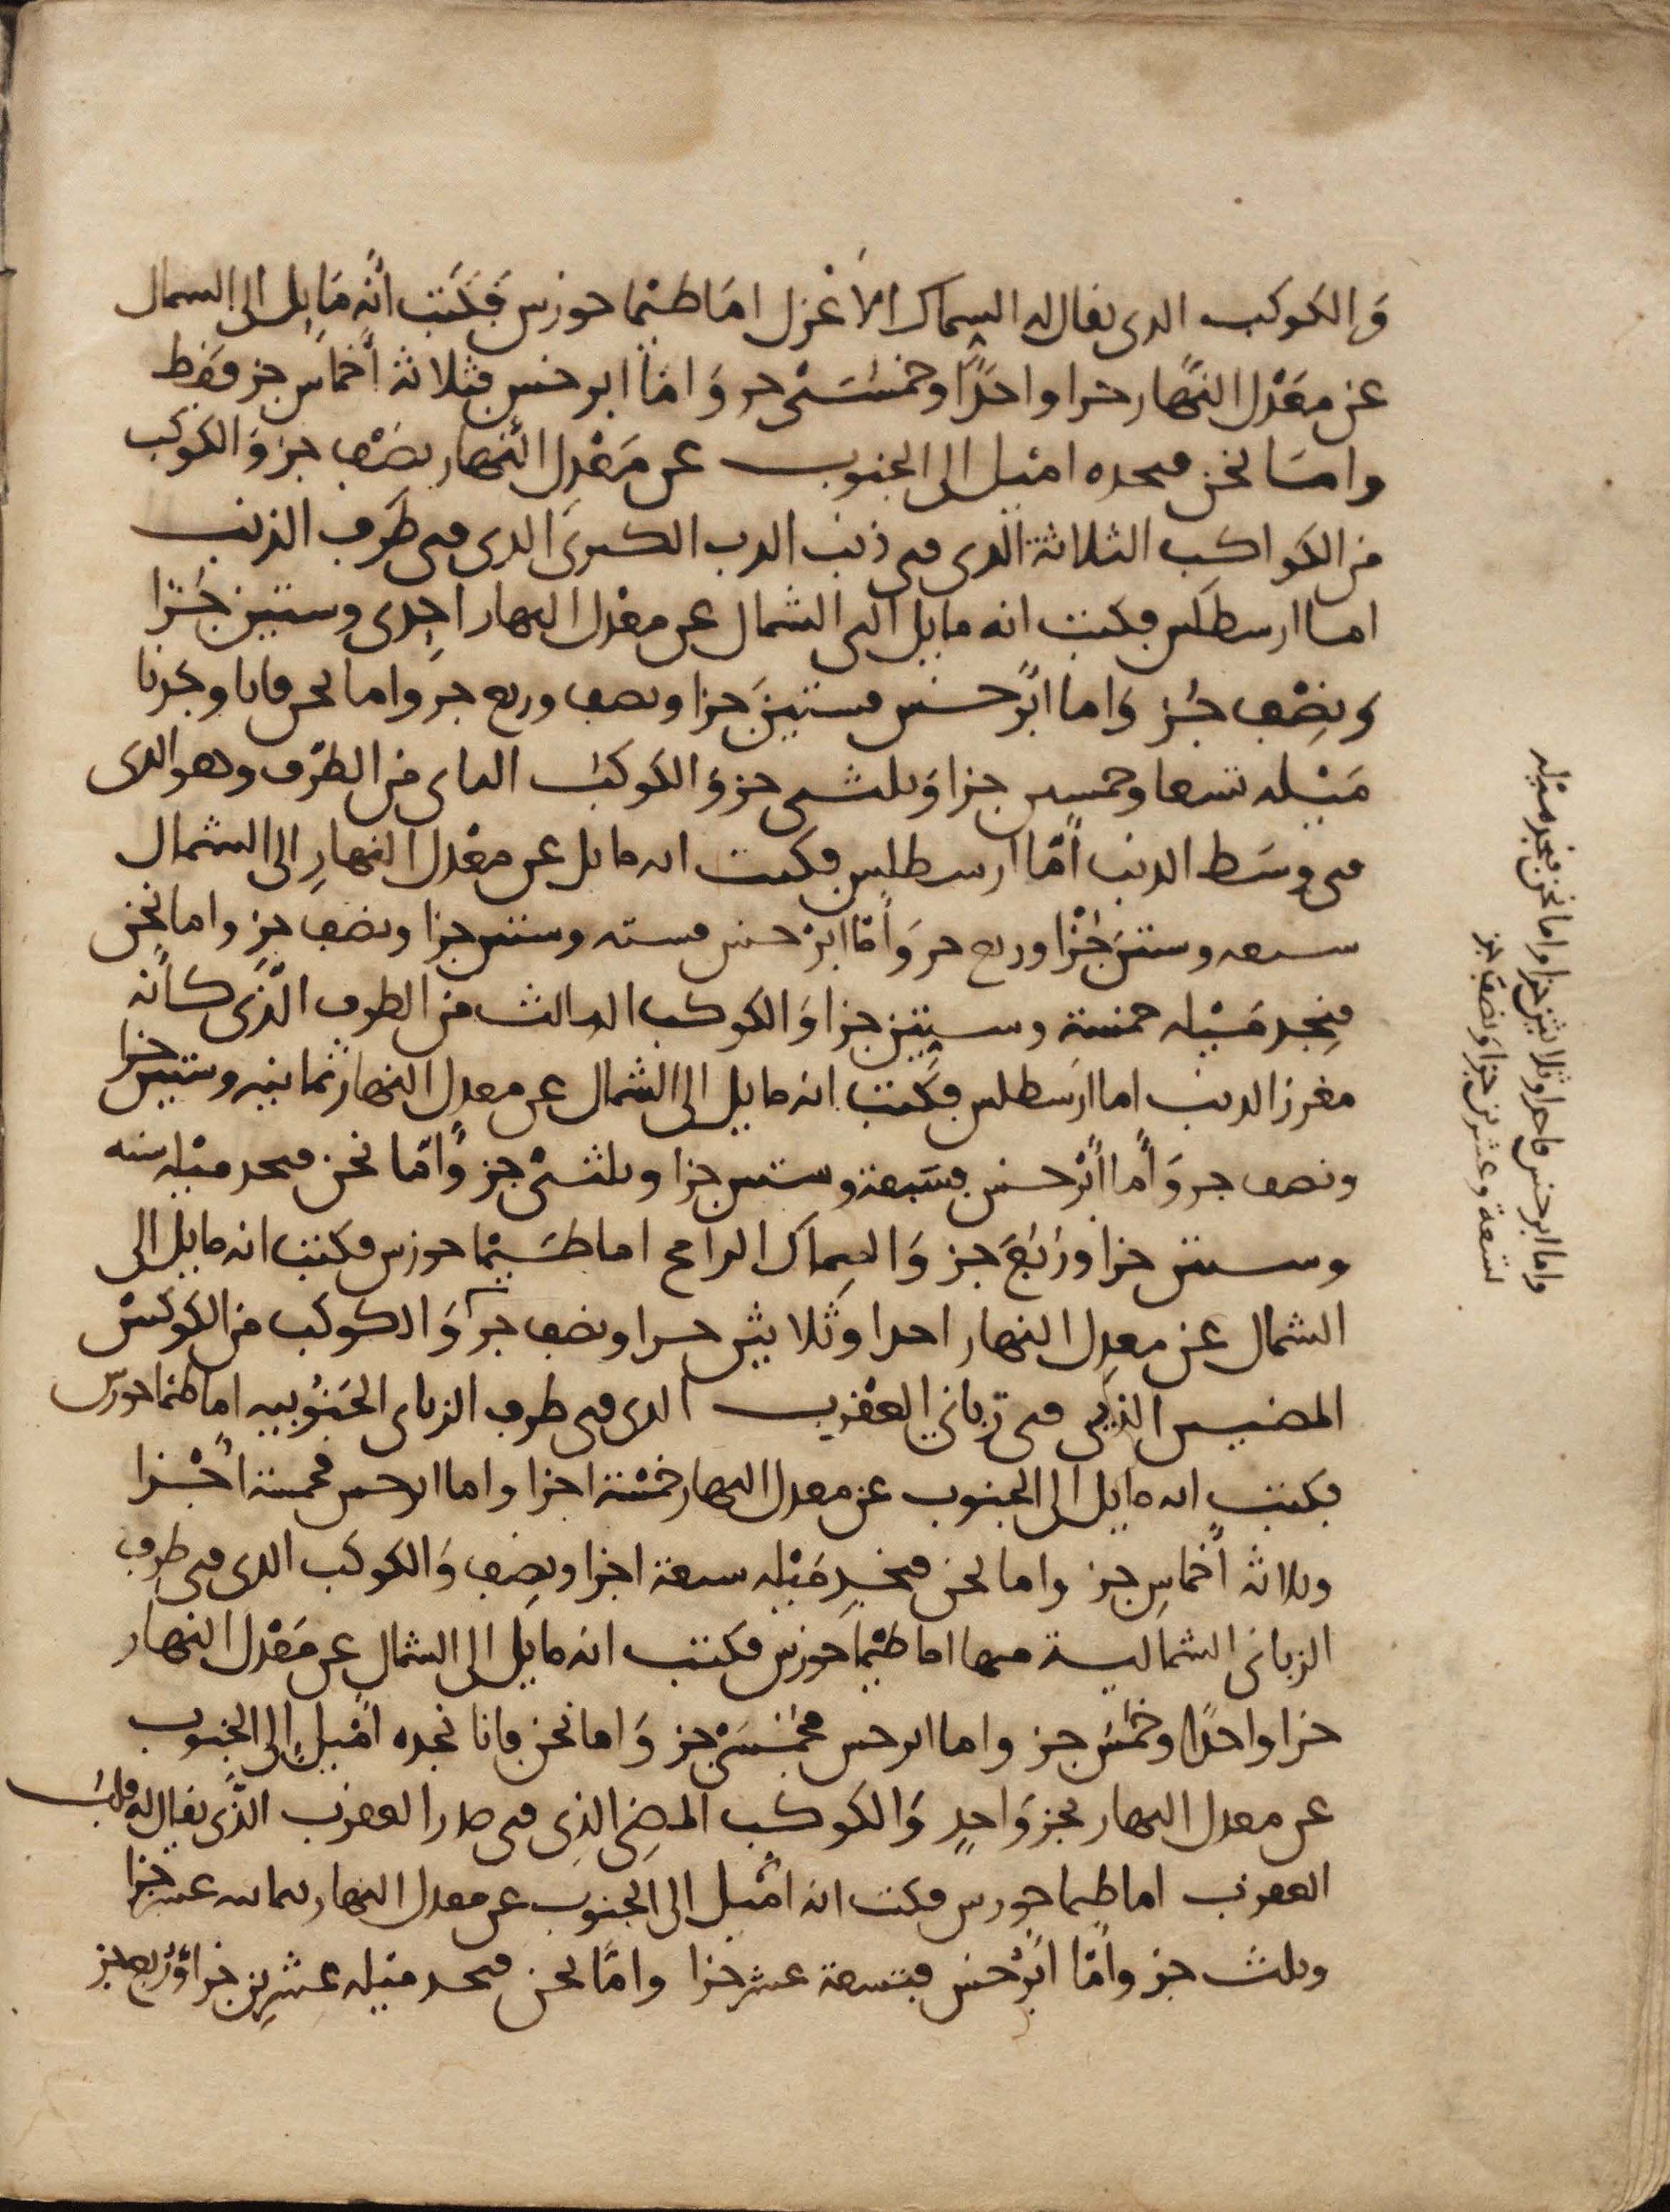 والكوكب الذى يقال له السماك الاعزل اما طيما حورس فكتب انه مايل الى الشمال
عن معدل النهار جزا واحدا وخمسى جز واما ابرخس فثلاثة اخماس جز فقط
واما نحن فنجده اميل الى الجنوب عن معدل النهار بنصف جز والكوكب
من الكواكب الثلاثة الذى فى ذنب الدب الكبرى الذى فى طرف الذنب
اما ارسطلس فكتب انه مايل الى الشمال عن معدل النهار احدى وستين جزا
ونصف جز واما ابرخس فستين جزا ونصف وربع جز واما نحن فانا وجدنا
ميله تسعا وخمسين جزا وثلثى جز والكوكب الثانى من الطرف وهو الذى
فى وسط الذنب اما ارسطلس فكتب انه مايل عن معدل النهار الى الشمال
سبعه وستين جزا وربع جز واما ابرخس فسته وستين جزا ونصف جز واما نحن
فنجد ميله خمسة وستين جزا والكوكب الثالث من الطرف الذى كانه
مغرز الذنب اما ارسطلس فكتب انه مايل الى الشمال عن معدل النهار ثمانيه وستين جزا
ونصف جز واما ابرخس فسبعة وستين جزا وثلثى جز واما نحن فنجد ميله سته
وستين جزا وربع جز والسماك الرامح اما طيما حورس فكتب انه مايل الى
الشمال عن معدل النهار احدا وثلاثين جزا ونصف جز والكوكب من الكوكبين
المضيين الذى فى زبانى العقرب الذى فى طرف الزبانى الجنوبيه اما طيما حورس
فكتب انه مايل الى الجنوب عن معدل النهار خمسة اجزا واما ابرخس فخمسة اجزا
وثلاثه اخماس جز واما نحن فنجد ميله سبعة اجزا ونصف والكوكب الذى فى طرف
الزبانى الشمالية منها اما طيما حورس فكتب انه مايل الى الشمال عن معدل النهار
جزا واحدا وخمس جز واما ابرخس فخمسى جز واما نحن فانا نجده اميل الى الجنوب
عن معدل النهار بجز واحد والكوكب المضى الذى فى صدر العقرب الذى يقال له قلب
العقرب اما طيما حورس فكتب انه اميل الى الجنوب عن معدل النهار ثمانيه عشر جزا
وثلث جز واما ابرخس فتسعة عشر جزا واما نحن فنجد ميله عشرين جزا وربع جز
واما ابرخس فاحدا وثلاثين جزا واما نحن فنجد ميله
تسعة وعشرين جزا ونصف جز